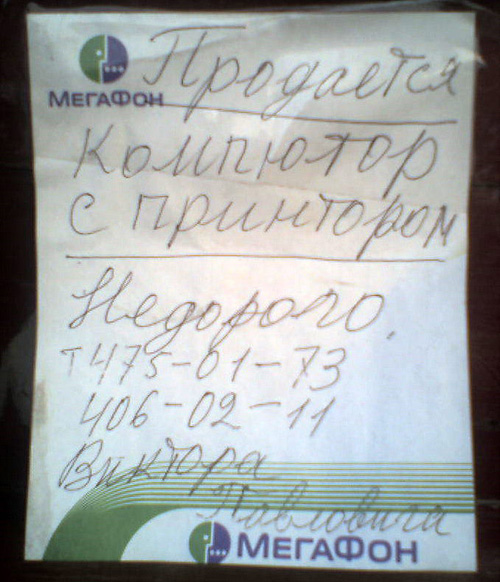 МЕГАФОН
Продается
Компютор
с принтором
Недорого.
т 475-01-73
406-02-11
Виктора
Павловича
МЕГАФОН